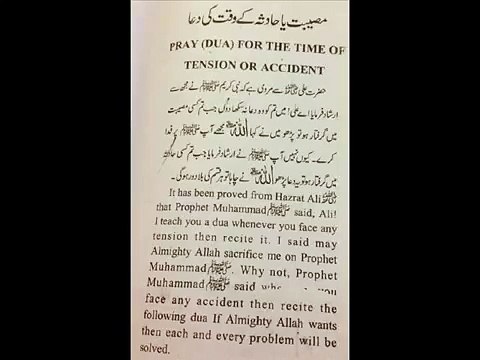 مصیبت یا حادثہ کے وقت کی دعا
PRAY (DUA) FOR THE TIME OF
TENSION OR ACCIDENT
حضرت علیؓ سے مروی ہے کہ نبی کریم ﷺ نے مجھ سے
ارشاد فرمایا اے علی! میں تم کو وہ دعا نہ سکھا دوں جب تم کسی مصیبت
میں گرفتار ہو تو پڑھو میں نے کہا اللہ مجھے آپ ﷺ پر فدا
کرے۔ کیوں نہیں آپ ﷺ نے ارشاد فرمایا جب تم کسی حادثہ
میں گرفتار ہو تو یہ دعا پڑھو اللہ نے چاہا تو ہر قسم کی بلا دور ہوگی۔
It has been proved from Hazrat Ali
that Prophet Muhammad ﷺ said, Ali!
I teach you a dua whenever you face any
tension then recite it. I said may
Almighty Allah sacrifice me on Prophet
Muhammad ﷺ. Why not, Prophet
Muhammad ﷺ said you
face any accident then recite the
following dua If Almighty Allah wants
then each and every problem will be
solved.